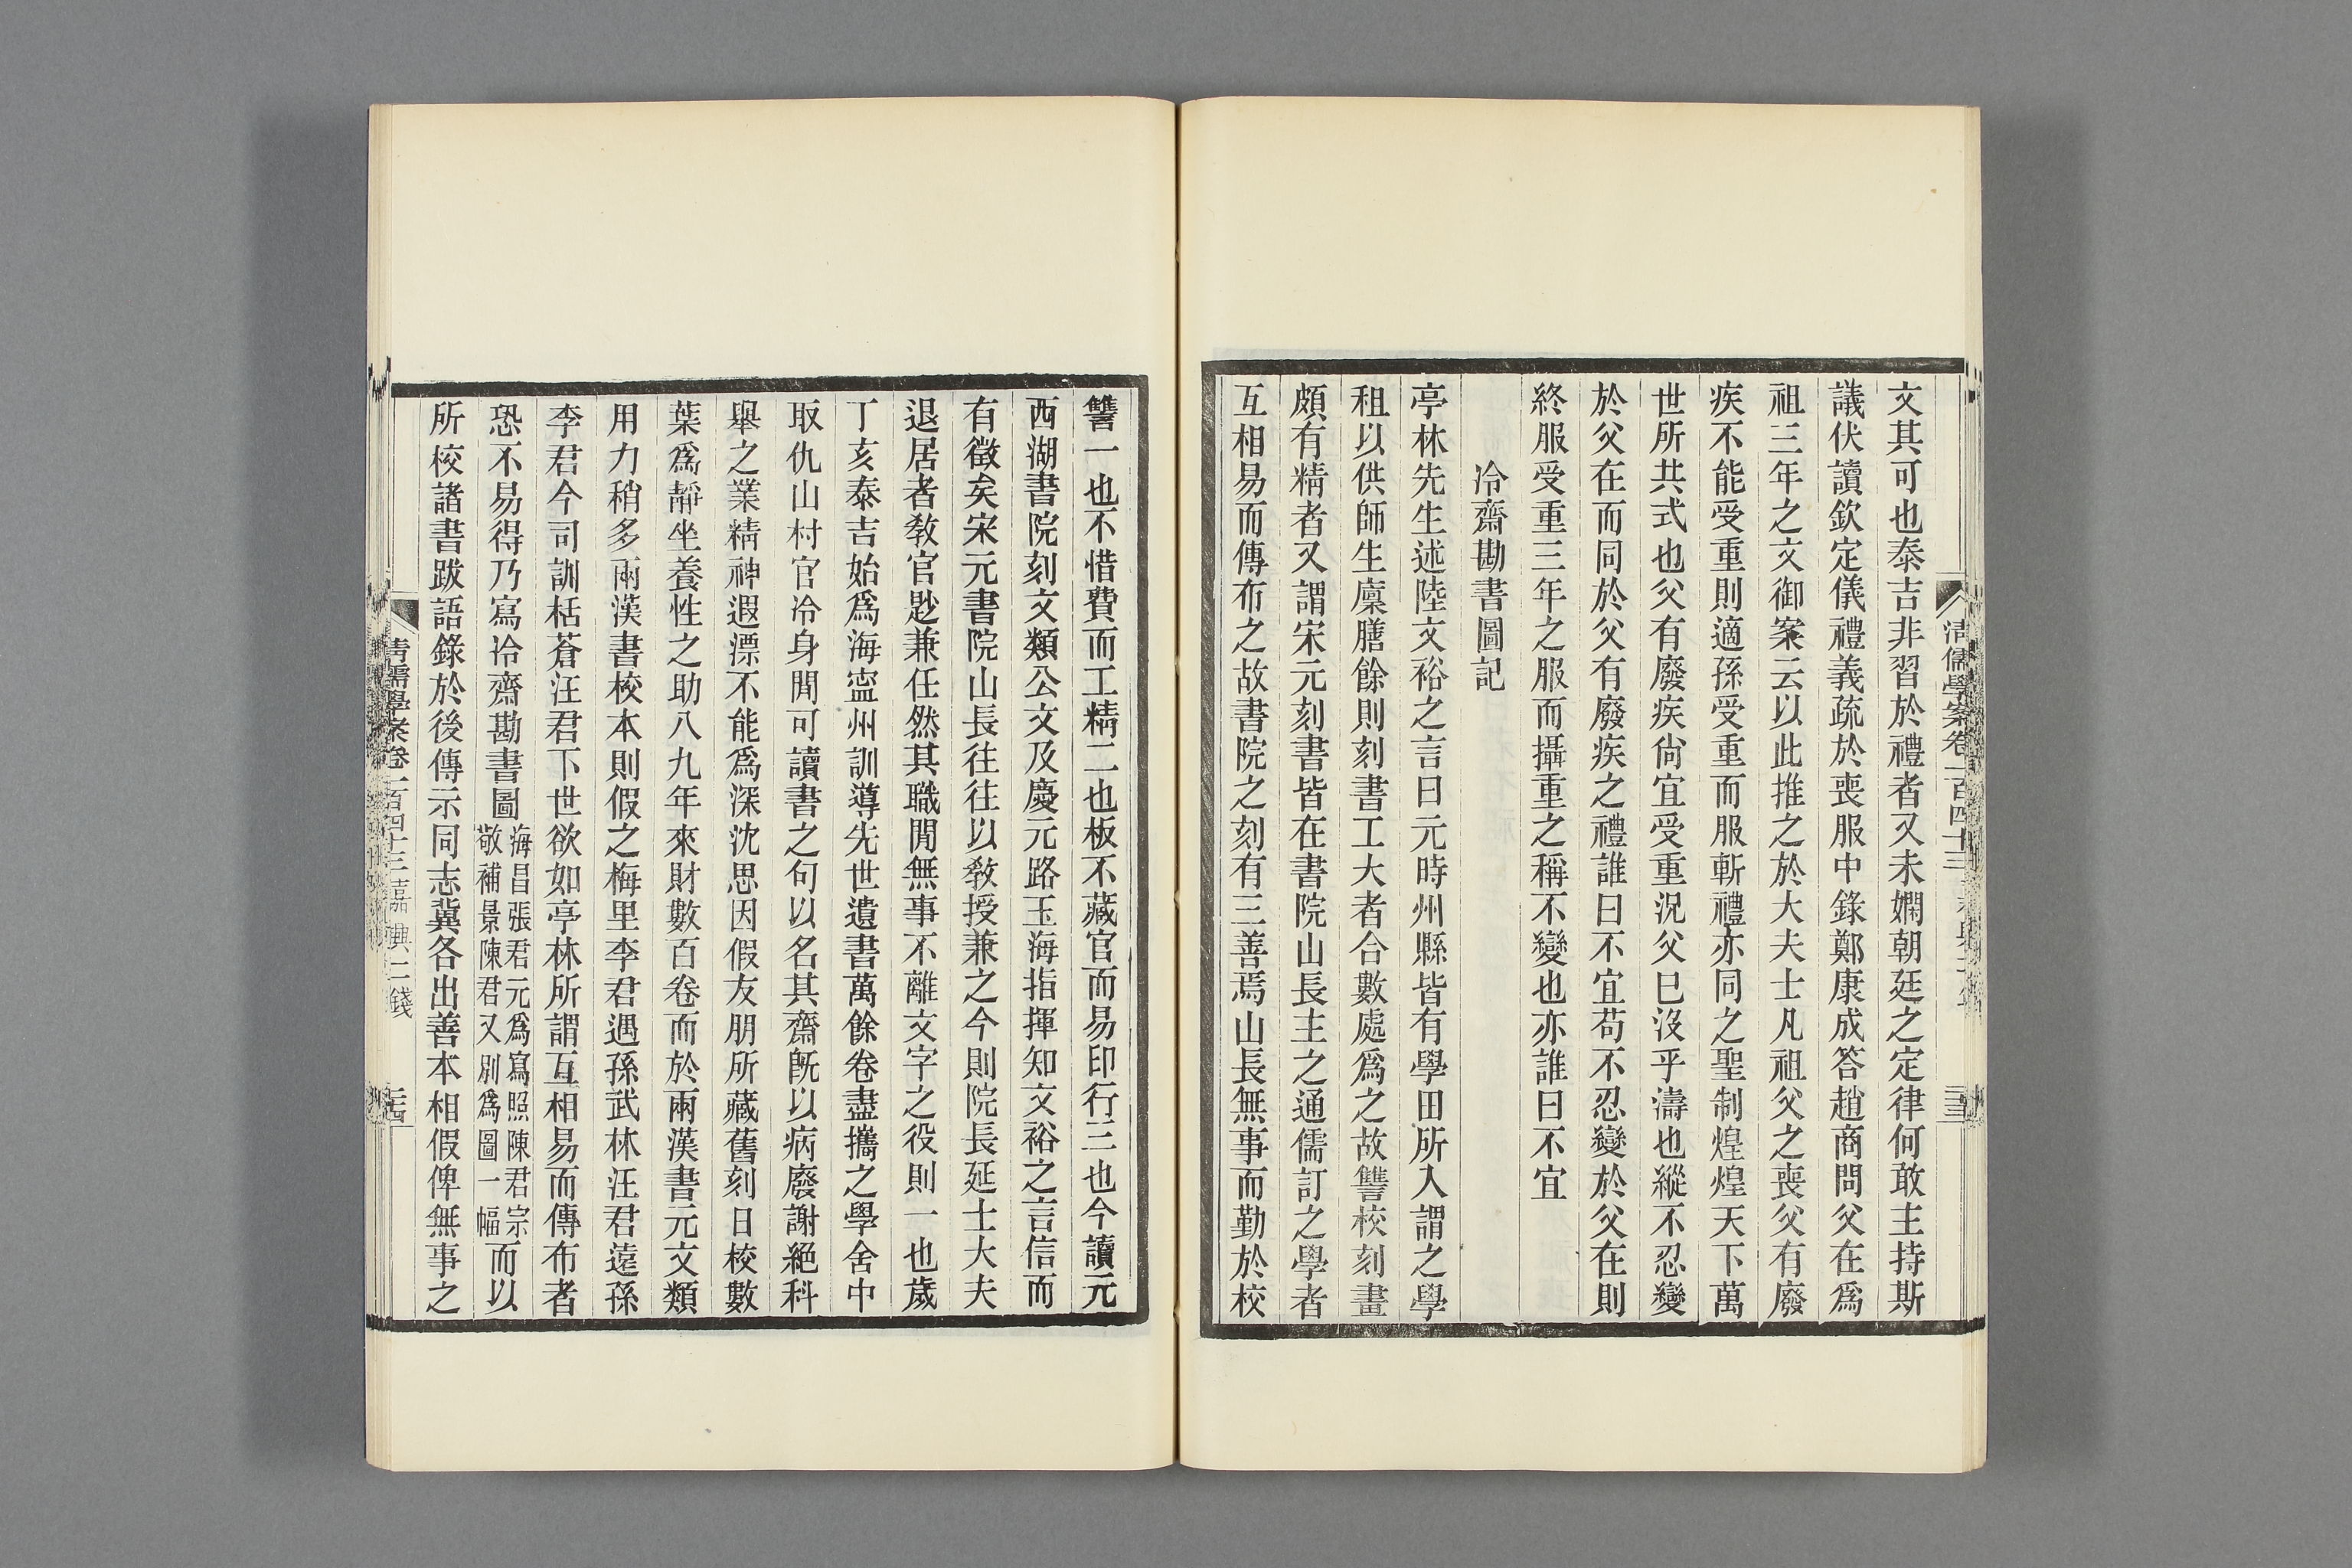 清儒學案卷一百四十三
三十三
文其可也泰吉非習於禮者又未嫻朝廷之定律何敢主持斯
議伏讀欽定儀禮義疏於喪服中錄鄭康成答趙商問父在爲
祖三年之文御案云以此推之於大夫士凡祖父之喪父有廢
疾不能受重則適孫受重而服斬禮亦同之聖制煌煌天下萬
世所共式也父有廢疾尙宜受重況父已沒乎濤也縱不忍變
於父在而同於父有廢疾之禮誰曰不宜苟不忍變於父在則
終服受重三年之服而攝重之稱不變也亦誰曰不宜
冷齋勘書圖記
亭林先生述陸文裕之言曰元時州縣皆有學田所入謂之學
租以供師生廩膳餘則刻書工大者合數處爲之故讐校刻畫
頗有精者又謂宋元刻書皆在書院山長主之通儒訂之學者
互相易而傳布之故書院之刻有三善焉山長無事而勤於校
讐一也不惜費而工精二也板不藏官而易印行三也今讀元
西湖書院刻文類公文及慶元路玉海指揮知文裕之言信而
有徵矣宋元書院山長往往以敎授兼之今則院長延士大夫
退居者敎官尠兼任然其職閒無事不離文字之役則一也歲
丁亥泰吉始爲海寍州訓導先世遺書萬餘卷盡攜之學舍中
取仇山村官冷身閒可讀書之句以名其齋旣以病廢謝絕科
舉之業精神遐漂不能爲深沈思因假友朋所藏舊刻日校數
葉爲靜坐養性之助八九年來財數百卷而於兩漢書元文類
用力稍多兩漢書校本則假之梅里李君遇孫武林汪君遠孫
李君今司訓栝蒼汪君下世欲如亭林所謂互相易而傳布者
恐不易得乃寫冷齋勘書圖海昌張君元爲寫照陳君宗敬補景陳君又別爲圖一幅而以
所校諸書跋語錄於後傳示同志冀各出善本相假俾無事之
清儒學案卷一百四十三 嘉興二錢
三十四